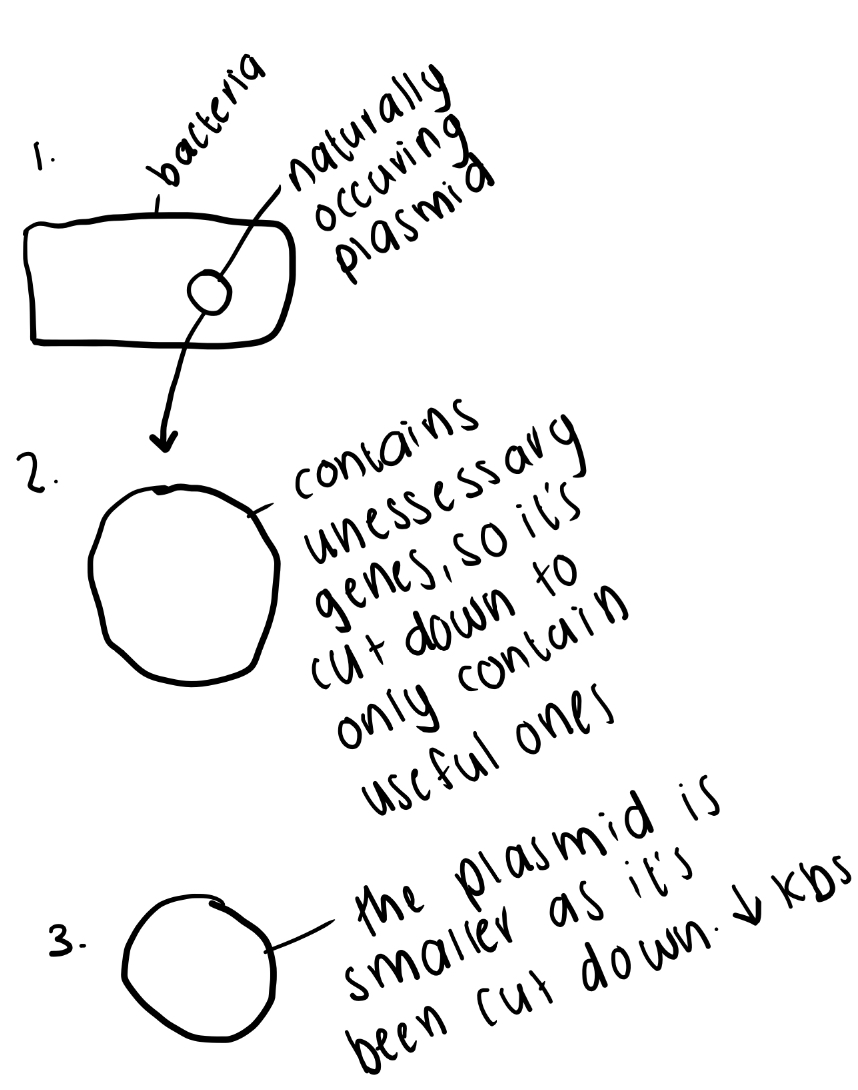 1.
bacteria
naturally
occuring
plasmid
2.
contains
unessessary
genes, so it's
cut down to
only contain
useful ones
3.
the plasmid is
smaller as it's
been cut down. ↓ kbs